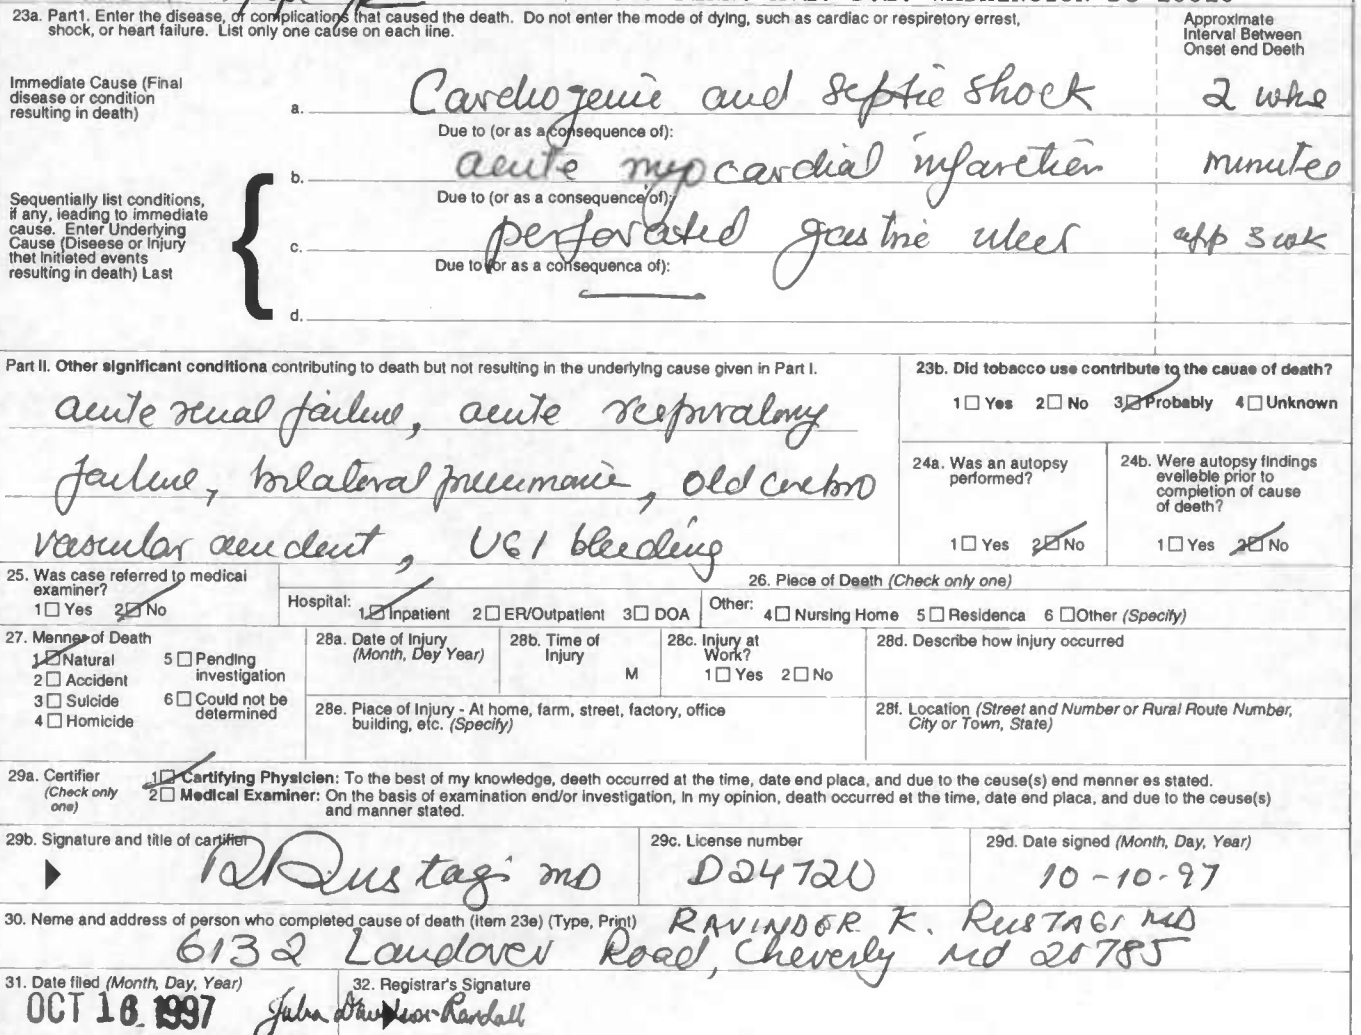 23a. Part1. Enter the disease, or complications that caused the death. Do not enter the mode of dying, such as cardiac or respiretory errest,
shock, or heart failure. List only one cause on each line.
Approximate
Interval Between
Onset end Deeth
Immediate Cause (Final
disease or condition
resulting in death)
a. Cardiogenic and septic shock 2 wks
Due to (or as a consequence of):
b. acute myocardial infarction minutes
Due to (or as a consequence of):
Sequentially list conditions,
if any, leading to immediate
cause. Enter Underlying
Cause (Diseese or Injury
thet Initieted events
resulting in death) Last
c. perforated gastric ulcer app 3 wk
Due to (or as a consequenca of):
d.
Part II. Other significant conditiona contributing to death but not resulting in the underlying cause given in Part I.
acute renal failure, acute respiratory
failure, bilateral pneumonia, old cerebro
vascular accident, UGI bleeding
23b. Did tobacco use contribute to the cauae of death?
1 Yes 2 No 3 Probably 4 Unknown
24a. Was an autopsy
performed?
1 Yes 2 No
24b. Were autopsy findings
eveileble prior to
completion of cause
of deeth?
1 Yes 2 No
25. Was case referred to medical
examiner?
1 Yes 2 No
26. Plece of Deeth (Check only one)
Hospital: 1 Inpatient 2 ER/Outpatient 3 DOA Other: 4 Nursing Home 5 Residenca 6 Other (Specify)
27. Menner of Death
1 Natural 5 Pending
investigation
2 Accident
3 Suicide 6 Could not be
determined
4 Homicide
28a. Date of Injury
(Month, Day Year)
28b. Time of
Injury
M
28c. Injury at
Work?
1 Yes 2 No
28d. Describe how injury occurred
28e. Place of Injury - At home, farm, street, factory, office
building, etc. (Specify)
28f. Location (Street and Number or Rural Route Number,
City or Town, State)
29a. Certifier
(Check only
one)
1 Cartifying Physicien: To the best of my knowledge, deeth occurred at the time, date end placa, and due to the ceuse(s) end menner es stated.
2 Medical Examiner: On the basis of examination end/or investigation, in my opinion, death occurred et the time, date end placa, and due to the ceuse(s)
and manner stated.
29b. Signature and title of cartifier
RRustagi MD
29c. License number
D24720
29d. Date signed (Month, Day, Year)
10-10-97
30. Name and address of person who completed cause of death (item 23e) (Type, Print) RAVINDER K. RUSTAGI MD
6132 Landover Road, Cheverly Md 20785
31. Date filed (Month, Day, Year)
OCT 16 1997
32. Registrar's Signature
Julia Davidson-Randall